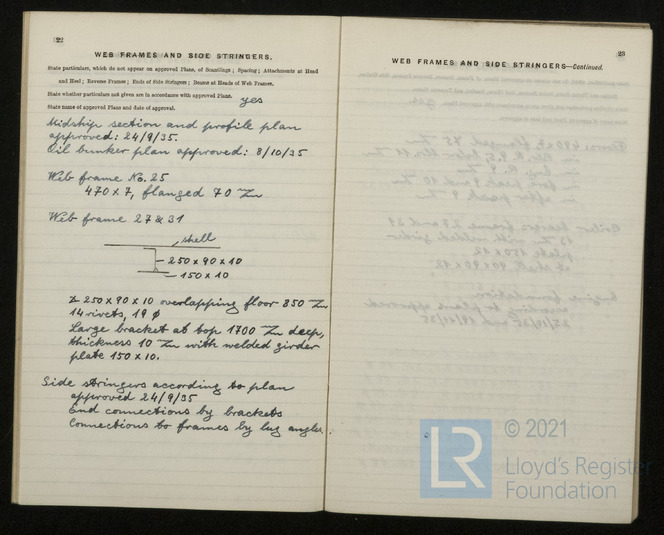 22
WEB FRAMES AND SIDE STRINGERS.
State particulars, which do not appear on approved Plans, of Scantlings; Spacing; Attachments at Head
and Heel; Reverse Frames; Ends of Side Stringers; Beams at Heads of Web Frames.
State whether particulars not given are in accordance with approved Plans. yes
State name of approved Plans and date of approval.
Midship section and profile plan
approved: 24/9/35.
Oil bunker plan approved: 8/10/35
Web frame No. 25
470 x 7, flanged 70 m
Web frame 27 & 31
shell
250 x 90 x 10
150 x 10
250 x 90 x 10 overlapping floor 850 m
14 rivets, 19 ø
Large bracket at top 1700 m deep,
thickness 10 m with welded girder
plate 150 x 10.
Side stringers according to plan
approved 24/9/35
End connections by brackets
Connections to frames by lug angles.
23
WEB FRAMES AND SIDE STRINGERS—Continued.
LR
© 2021
Lloyd's Register
Foundation